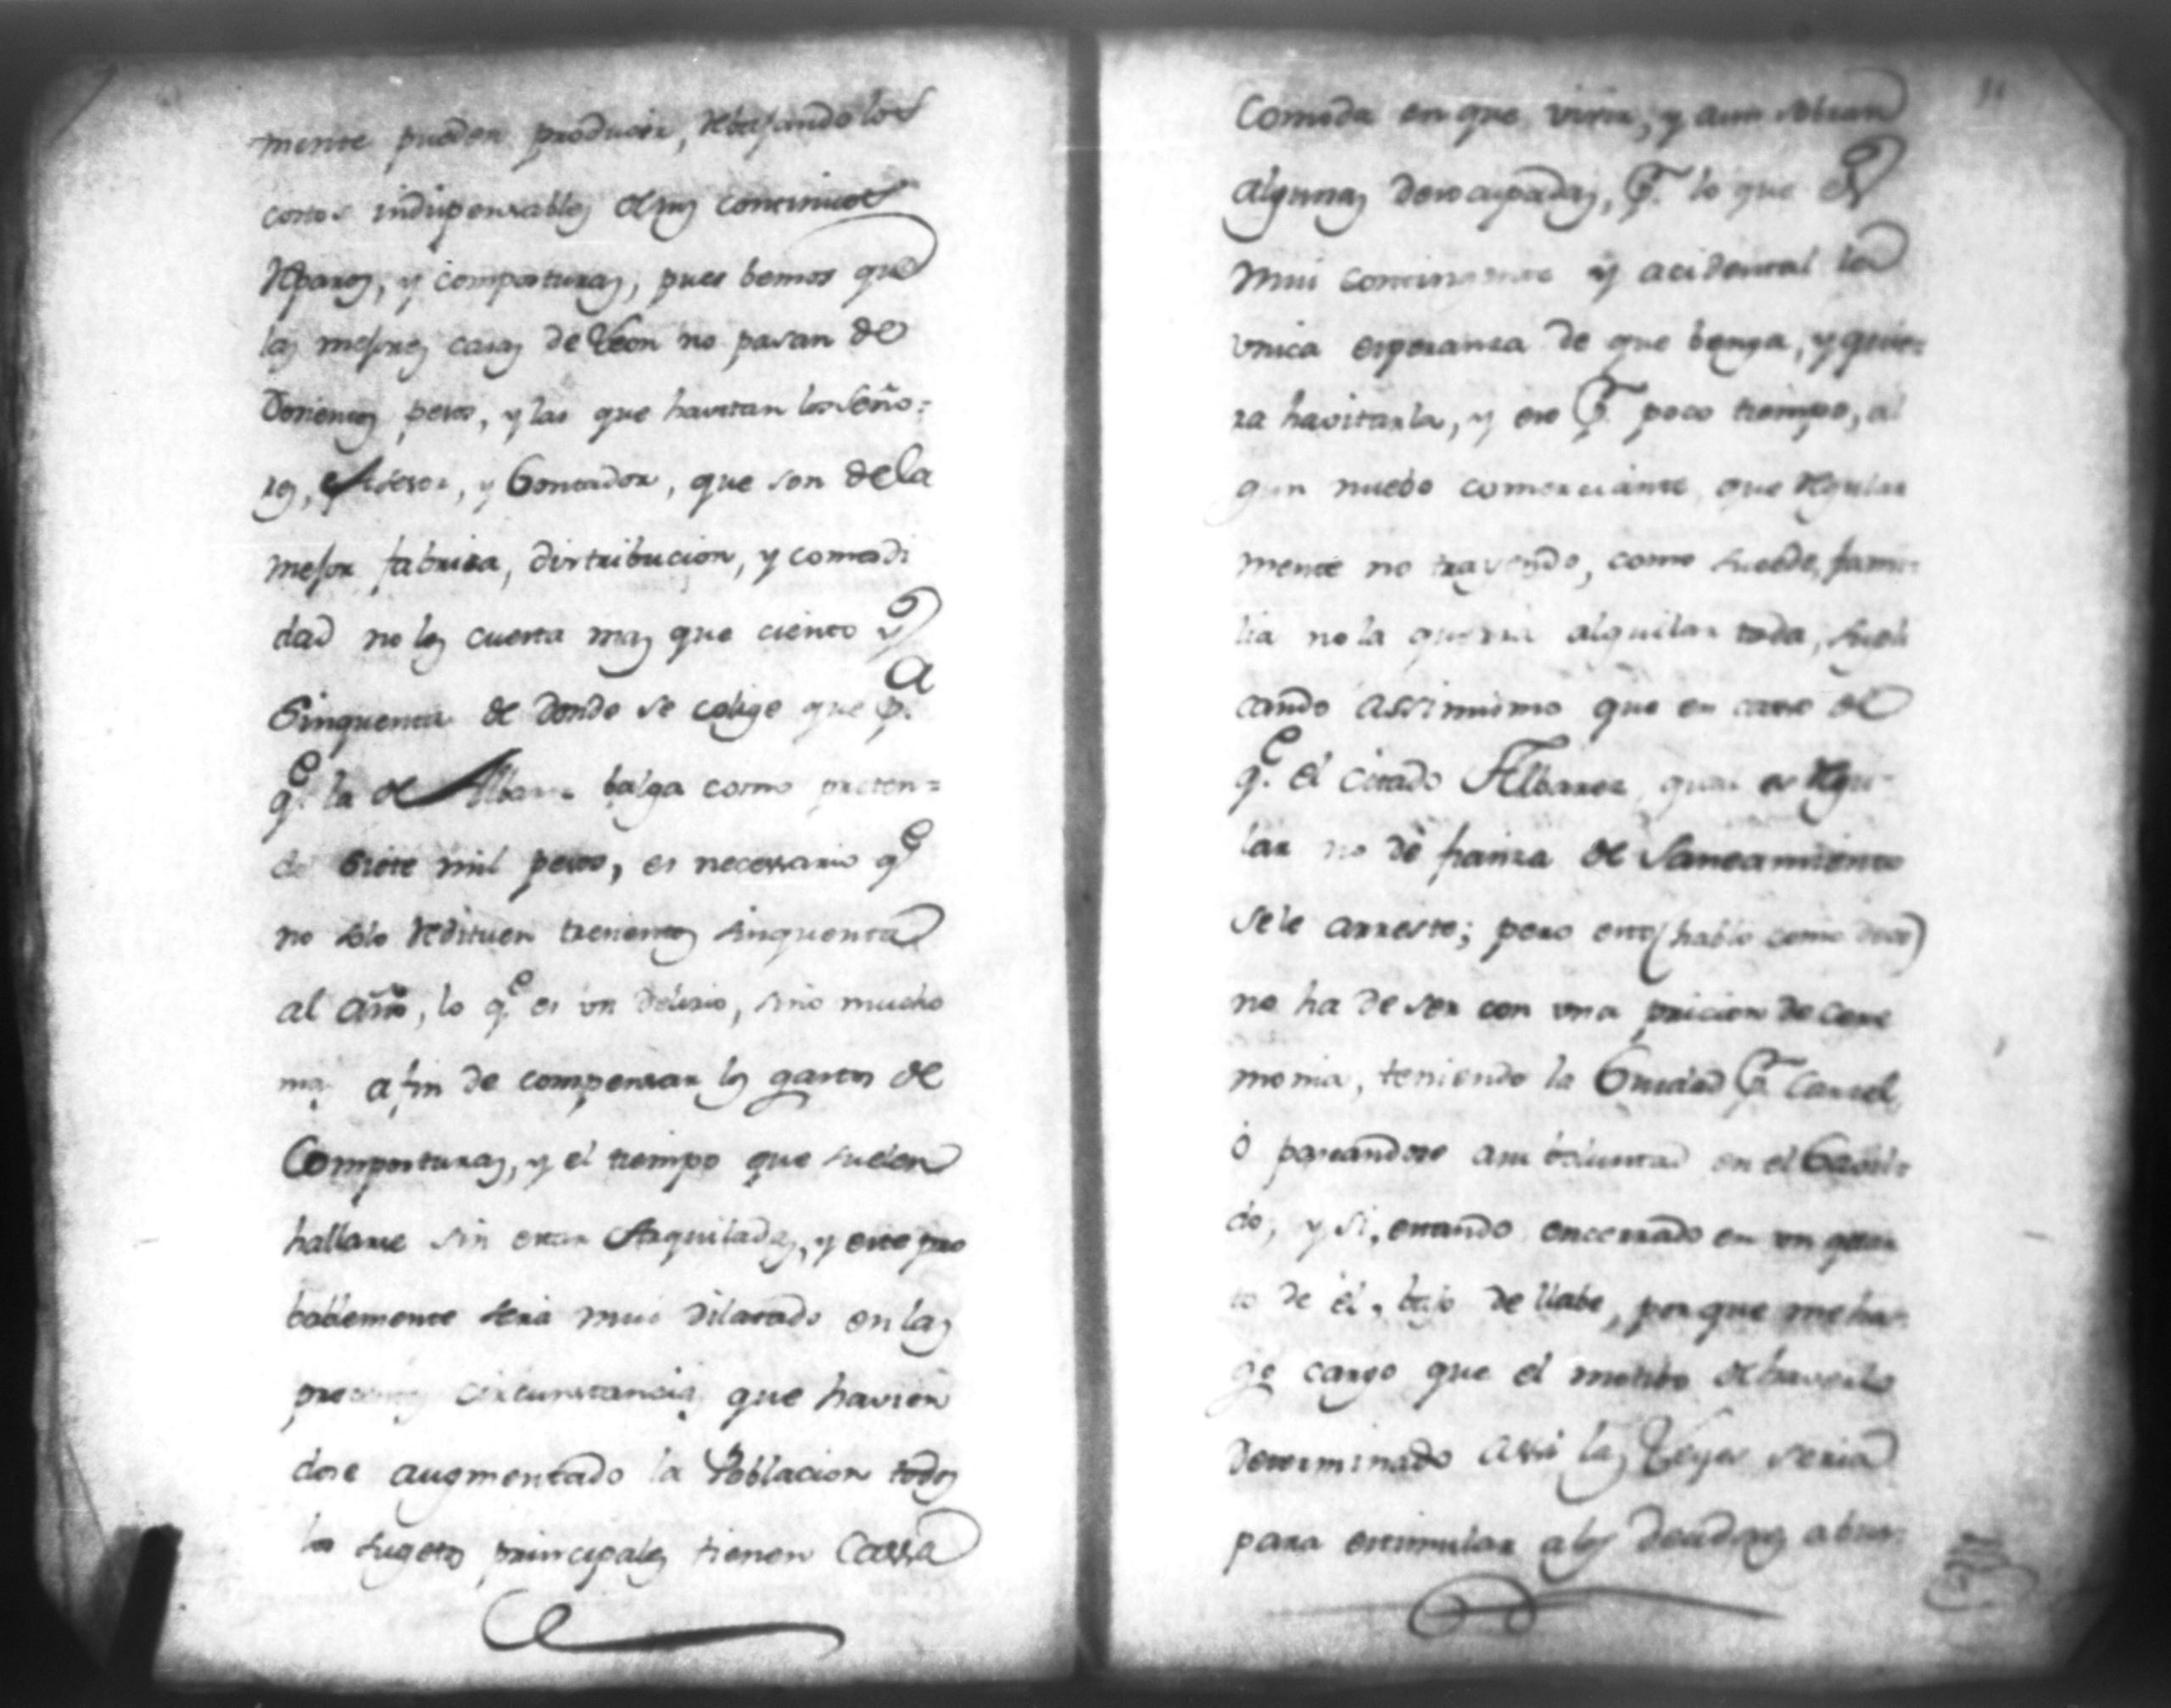 mente pueden producir, rebajando los
costos indispensables de sus continuos
reparos, y composturas, pues bemos que
las mejores casas de Leon no pasan de
Doscientos pesos, y las que havitan los Seño=
res, Asesor, y Contador, que son de la
mejor fabrica, distribucion, y comodi
dad no les cuesta mas que ciento y
Cinquenta de donde se colige que pa.
qe. la de Albarez balga como preten=
de Siete mil pesos, es necessario qe
no solo reditue trescientos sinquenta
al año, lo qe. es un delirio, sino mucho
mas afin de compensar los gastos de
Composturas, y el tiempo que suelen
hallarse sin estar Arquiladas, y este pro
bablemente seria mui dilatado en las
presentes circunstancias que havien
dose augmentado la Poblacion todos
los sugetos principales tienen Cassa
11
Comoda en que vivir, y aun sobran
algunas desocupadas, Pr. lo que es
mui contingente y acidental la
unica esperanza de que benga, y quie=
ra havitarla, y eso Pr. poco tiempo, al
gun nuebo comerciante, que regular
mente no trayendo, como sucede, fami=
lia no la querra alquilar toda, supli
cando assimismo que en caso de
qe. el citado Albarez, qual es regu-
lar no dé fianza de Saneamiento
sele arreste; pero esto (hablo como devo)
no ha de ser con una pricion de cere
monia, teniendo la Ciudad Pr. Carcel,
ó paseandose a su boluntad en el Cavil
do, y si, estando encerrado en un quar
to de él, bajo de llabe, por que me ha=
go cargo que el motibo de haverlo
determinado assi las Leyes seria
para estimular a los deudores abus=